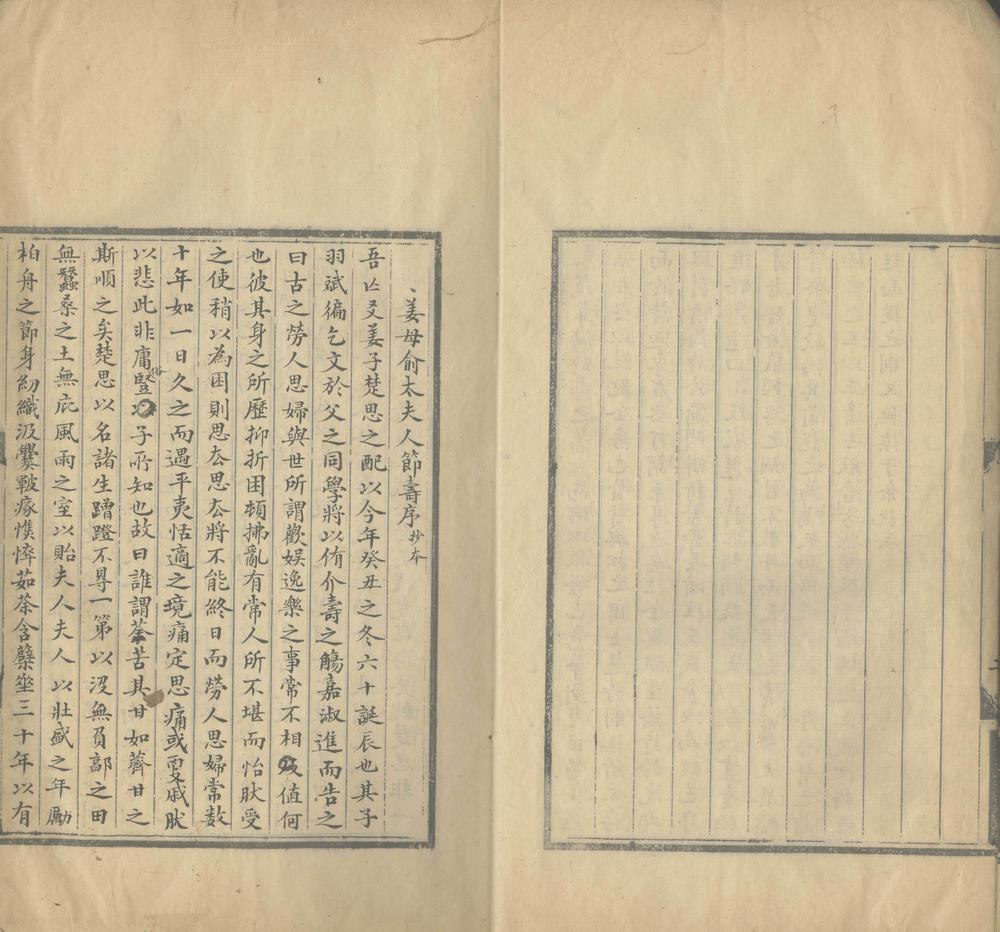 姜母俞太夫人節壽序抄本
吾亡友姜子楚思之配以今年癸丑之冬六十誕辰也其子
羽斌徧乞文於父之同學將以侑介壽之觴嘉淑進而告之
曰古之勞人思婦與世所謂歡娱逸樂之事常不相值何
也彼其身之所歷抑折困頓拂亂有常人所不堪而怡肰受
之使稍以為困則思厺思厺將不能終日而勞人思婦常数
十年如一日久之而遇平夷恬適之境痛定思痛或更戚肰
以悲此非庸豎子所知也故曰誰謂荼苦其甘如薺甘之
斯順之矣楚思以名諸生蹭蹬不㝵一第以沒無負郭之田
無蠶桑之土無庇風雨之室以貽夫人夫人以壮盛之年勵
柏舟之節身紉織汲爨皸瘃憔悴茹荼含蘗垂三十年以有